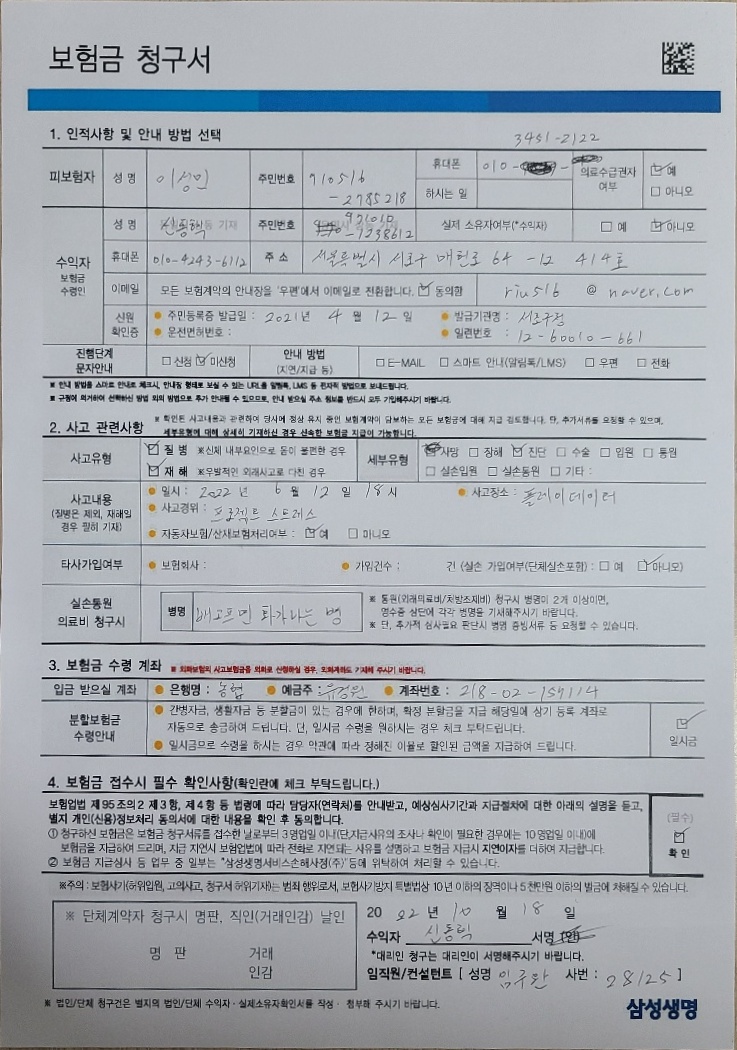 보험금 청구서
1. 인적사항 및 안내 방법 선택
3451-2122
피보험자 성 명 이성민 주민번호 910516 -2785218 휴대폰 010- - 의료수급권자 여부 예 아니오
하시는 일
수익자 보험금 수령인 성 명 신동혁 주민번호 971010 -1238612 실제 소유자여부(*수익자) 예 아니오
휴대폰 010-4243-6112 주 소 서울특별시 서초구 매헌로 64 -12 414호
이메일 모든 보험계약의 안내장을 '우편'에서 이메일로 전환합니다. 동의함 riu516 @ naver.com
신원 확인증 주민등록증 발급일 : 2021년 4월 12일 발급기관명 : 서초구청
운전면허번호 : 일련번호 : 12-60010-661
진행단계 문자안내 신청 미신청 안내 방법 (지연/지급 등) E-MAIL 스마트 안내(알림톡/LMS) 우편 전화
※ 안내 방법을 스마트 안내로 체크시, 안내장 형태로 보실 수 있는 URL을 알림톡, LMS 등 전자적 방법으로 보내드립니다.
※ 규정에 의거하여 선택하신 방법 외의 방법으로 추가 안내될 수 있으므로, 안내 받으실 주소 정보를 반드시 모두 기입해주시기 바랍니다.
2. 사고 관련사항 ※ 확인된 사고내용과 관련하여 당사에 정상 유지 중인 보험계약이 담보하는 모든 보험금에 대해 지급 검토합니다. 단, 추가서류를 요청할 수 있으며,
세부유형에 대해 상세히 기재하신 경우 신속한 보험금 지급이 가능합니다.
사고유형 질 병 ※신체 내부요인으로 몸이 불편한 경우 세부유형 사망 장해 진단 수술 입원 통원
재 해 ※우발적인 외래사고로 다친 경우 실손입원 실손통원 기타 :
사고내용 (질병은 제외, 재해일 경우 필히 기재) 일시 : 2022년 6월 12일 18시 사고장소 : 플레이데이터
사고경위 : 프로젝트 스트레스
자동차보험/산재보험처리여부 : 예 아니오
타사가입여부 보험회사 : 가입건수 : 건 (실손 가입여부(단체실손포함) : 예 아니오)
실손통원 의료비 청구시 병명 배고프면 화가나는 병 ※ 통원(외래의료비/처방조제비) 청구시 병명이 2개 이상이면,
영수증 상단에 각각 병명을 기재해주시기 바랍니다.
※ 단, 추가적 심사필요 판단시 병명 증빙서류 등 요청할 수 있습니다.
3. 보험금 수령 계좌 ※ 외화보험의 사고보험금을 외화로 신청하실 경우, 외화계좌도 기재해 주시기 바랍니다.
입금 받으실 계좌 은행명 : 농협 예금주 : 유정원 계좌번호 : 218-02-159114
분할보험금 수령안내 간병자금, 생활자금 등 분할금이 있는 경우에 한하며, 확정 분할금을 지급 해당일에 상기 등록 계좌로
자동으로 송금하여 드립니다. 단, 일시금 수령을 원하시는 경우 체크 부탁드립니다. 일시금
일시금으로 수령을 하시는 경우 약관에 따라 정해진 이율로 할인된 금액을 지급하여 드립니다.
4. 보험금 접수시 필수 확인사항(확인란에 체크 부탁드립니다.)
보험업법 제95조의2 제3항, 제4항 등 법령에 따라 담당자(연락처)를 안내받고, 예상심사기간과 지급절차에 대한 아래의 설명을 듣고,
별지 개인(신용)정보처리 동의서에 대한 내용을 확인 후 동의합니다. (필수)
① 청구하신 보험금은 보험금 청구서류를 접수한 날로부터 3영업일 이내(단,지급사유의 조사나 확인이 필요한 경우에는 10영업일 이내)에
보험금을 지급하여 드리며, 지급 지연시 보험업법에 따라 전화로 지연되는 사유를 설명하고 보험금 지급시 지연이자를 더하여 지급합니다. 확 인
② 보험금 지급심사 등 업무 중 일부는 "삼성생명서비스손해사정(주)"등에 위탁하여 처리할 수 있습니다.
※주의 : 보험사기(허위입원, 고의사고, 청구서 허위기재)는 범죄 행위로서, 보험사기방지 특별법상 10년 이하의 징역이나 5천만원 이하의 벌금에 처해질 수 있습니다.
※ 단체계약자 청구시 명판, 직인(거래인감) 날인 2022년 10월 18일
명 판 거래 인감 수익자 신동혁 서명
*대리인 청구는 대리인이 서명해주시기 바랍니다.
임직원/컨설턴트 [ 성명 임구완 사번 : 28125 ]
※ 법인/단체 청구건은 별지의 법인/단체 수익자·실제소유자확인서를 작성· 첨부해 주시기 바랍니다. 삼성생명